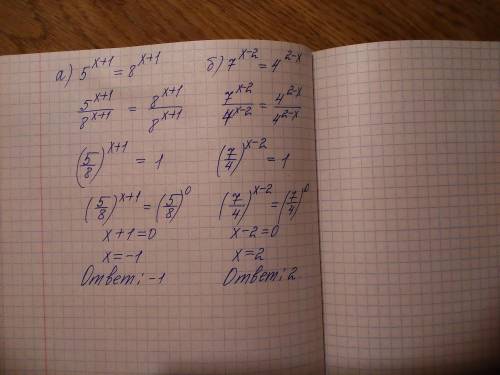 а) 5^(x+1) = 8^(x+1)
5^(x+1)/8^(x+1) = 8^(x+1)/8^(x+1)
(5/8)^(x+1) = 1
(5/8)^(x+1) = (5/8)^0
x+1=0
x=-1
Ответ: -1
б) 7^(x-2) = 4^(2-x)
7^(x-2)/4^(x-2) = 4^(2-x)/4^(2-x)
(7/4)^(x-2) = 1
(7/4)^(x-2) = (7/4)^0
x-2=0
x=2
Ответ: 2